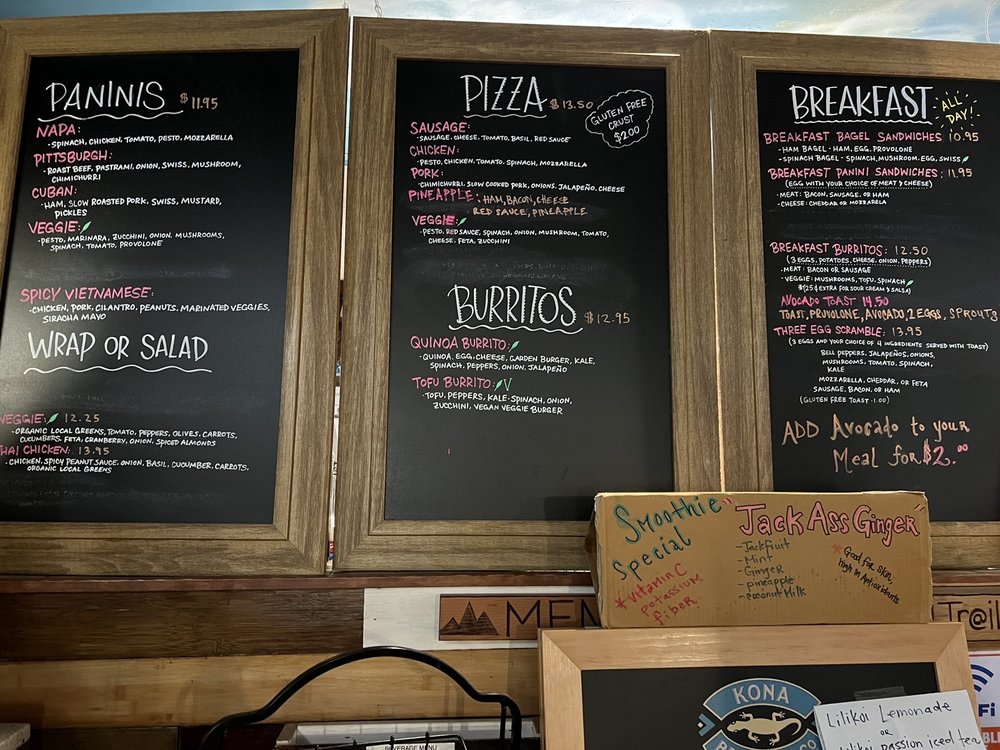 PANINIS $11.95
NAPA:
•SPINACH, CHICKEN, TOMATO, PESTO, MOZZARELLA
PITTSBURGH:
•ROAST BEEF, PASTRAMI, ONION, SWISS, MUSHROOM,
CHIMICHURRI
CUBAN:
•HAM, SLOW ROASTED PORK, SWISS, MUSTARD,
PICKLES
VEGGIE:
•PESTO, MARINARA, ZUCCHINI, ONION, MUSHROOMS,
SPINACH, TOMATO, PROVOLONE
SPICY VIETNAMESE:
•CHICKEN, PORK, CILANTRO, PEANUTS, MARINATED VEGGIES,
SIRACHA MAYO
WRAP OR SALAD
VEGGIE: 12.25
•ORGANIC LOCAL GREENS, TOMATO, PEPPERS, OLIVES, CARROTS,
CUCUMBERS, FETA, CRANBERRY, ONION, SPICED ALMONDS
HAI CHICKEN: 13.95
•CHICKEN, SPICY PEANUT SAUCE, ONION, BASIL, CUCUMBER, CARROTS,
ORGANIC LOCAL GREENS
PIZZA $13.50
GLUTEN FREE
CRUST
$2.00
SAUSAGE:
•SAUSAGE, CHEESE, TOMATO, BASIL, RED SAUCE
CHICKEN:
•PESTO, CHICKEN, TOMATO, SPINACH, MOZZARELLA
PORK:
•CHIMICHURRI, SLOW COOKED PORK, ONIONS, JALAPEÑO, CHEESE
PINEAPPLE: HAM, BACON, CHEESE
RED SAUCE, PINEAPPLE
VEGGIE:
•PESTO, RED SAUCE, SPINACH, ONION, MUSHROOM, TOMATO,
CHEESE, FETA, ZUCCHINI
BURRITOS $12.95
QUINOA BURRITO:
•QUINOA, EGG, CHEESE, GARDEN BURGER, KALE,
SPINACH, PEPPERS, ONION, JALAPEÑO
TOFU BURRITO: V
•TOFU, PEPPERS, KALE-SPINACH, ONION,
ZUCCHINI, VEGAN VEGGIE BURGER
BREAKFAST ALL DAY!
BREAKFAST BAGEL SANDWICHES 10.95
•HAM BAGEL - HAM, EGG, PROVOLONE
•SPINACH BAGEL - SPINACH, MUSHROOM, EGG, SWISS
BREAKFAST PANINI SANDWICHES: 11.95
(EGG WITH YOUR CHOICE OF MEAT & CHEESE)
•MEAT: BACON, SAUSAGE, OR HAM
•CHEESE: CHEDDAR OR MOZZARELA
BREAKFAST BURRITOS: 12.50
(3 EGGS, POTATOES, CHEESE, ONION, PEPPERS)
•MEAT: BACON OR SAUSAGE
•VEGGIE: MUSHROOMS, TOFU, SPINACH
*$1.25¢ EXTRA FOR SOUR CREAM & SALSA)
AVOCADO TOAST 14.50
TOAST, PROVOLONE, AVOCADO, 2 EGGS, SPROUTS
THREE EGG SCRAMBLE: 13.95
(3 EGGS AND YOUR CHOICE OF 4 INGREDIENTS SERVED WITH TOAST)
BELL PEPPERS, JALAPEÑOS, ONIONS,
MUSHROOMS, TOMATO, SPINACH,
KALE
MOZZARELLA, CHEDDAR, OR FETA
SAUSAGE, BACON, OR HAM
(GLUTEN FREE TOAST •1.00)
ADD Avocado to your
Meal for $2.00
Smoothie
Special
*Vitamin C
Potassium
fiber
"JackAssGinger"
-Jackfruit
-Mint
-Ginger
-pineapple
-coconut Milk
*Good for skin,
high in Antioxidants
MEN
Tr@il
Fi
KONA
Lilikoi Lemonade
OR
passion iced tea
BEVERAGE MENU